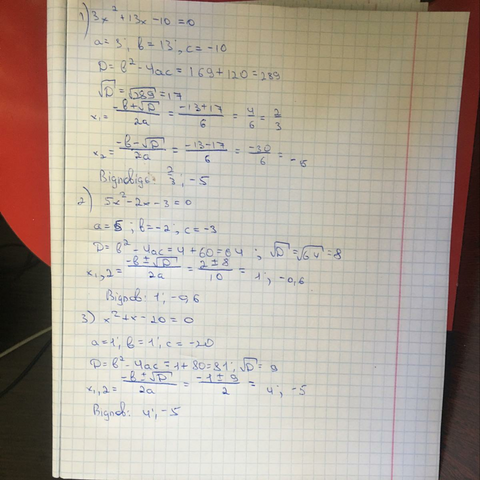 1) 3x² + 13x - 10 = 0
a = 3; b = 13; c = -10
D = b² - 4ac = 169 + 120 = 289
√D = √289 = 17
x₁ = (-b + √D)/2a = (-13 + 17)/6 = 4/6 = 2/3
x₂ = (-b - √D)/2a = (-13 - 17)/6 = -30/6 = -5
Відповідь: 2/3; -5
2) 5x² - 2x - 3 = 0
a = 5; b = -2; c = -3
D = b² - 4ac = 4 + 60 = 64; √D = √64 = 8
x₁,₂ = (-b ± √D)/2a = (2 ± 8)/10 = 1; -0,6
Віднов: 1; -0,6
3) x² + x - 20 = 0
a = 1; b = 1; c = -20
D = b² - 4ac = 1 + 80 = 81; √D = 9
x₁,₂ = (-b ± √D)/2a = (-1 ± 9)/2 = 4; -5
Віднов: 4; -5